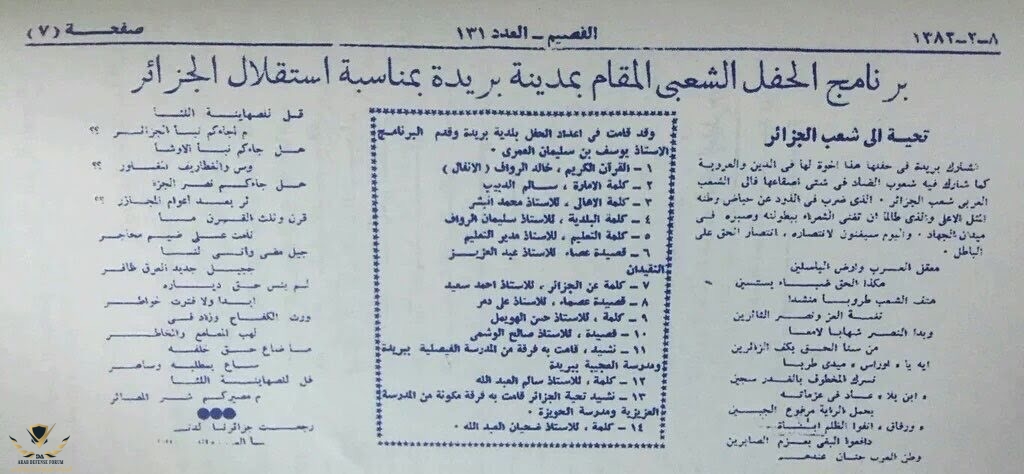 ٨-٢-١٣٨٢
القصيم - العدد ١٣١
صفحة (٧)
برنامج الحفل الشعبي المقام بمدينة بريدة بمناسبة استقلال الجزائر
تحية الى شعب الجزائر
تشارك بريدة في حفلها هذا اخوة لها في الدين والعروبة
كما شارك فيه شعوب الضاد في شتى اصقاعها فالى الشعب
العربي شعب الجزائر . الذى ضرب في الذود عن حياض وطنه
المثل الاعلى والذى طالما ان تغنى الشعراء ببطولته وصبره في
ميدان الجهاد . واليوم سيغنون لانتصاره ، انتصار الحق على
الباطل .
معقل العرب وارض الباسلين
هكذا الحق ضياء يستبين
هتف الشعب طروبا منشدا
نغمة العز ونصر الثائرين
وبدا النصر شهابا لامعا
من سنا الحق بكف الزائرين
ايه يا « اوراس » ميدى طربا
نسرك المخطوف بالغدر سجين
« ابن بلا » عاد في عزماته
يحمل الراية مرفوع الجبين
« ورفاق » انفوا الظلم
دافعوا البغى بعزم الصابرين
وطن العرب جنان عندهم
وقد قامت في اعداد الحفل بلدية بريدة وقدم البرنامج
الاستاذ يوسف بن سليمان العمرى .
١ - القرآن الكريم ، خالد الرواف ( الانفال )
٢ - كلمة الامارة ، سالم الدبيب
٣ - كلمة الاهالى ، للاستاذ محمد
٤ - كلمة البلدية ، للاستاذ سليمان الرواف
٥ - كلمة التعليم ، للاستاذ مدير التعليم
٦ - قصيدة عصماء للاستاذ عبد العزيز
النقيدان
٧ - كلمة عن الجزائر ، للاستاذ احمد سعيد
٨ - قصيدة عصماء ، للاستاذ على دمر
٩ - كلمة ، للاستاذ حسن الهويمل
١٠ - قصيدة ، للاستاذ صالح الوشمى
١١ - نشيد ، قامت به فرقة من المدرسة الفيصلية ببريدة
ومدرسة العجيبة ببريدة
١٢ - كلمة ، للاستاذ سالم العبد الله
١٣ - نشيد تحية الجزائر قامت به فرقة مكونة من المدرسة
العزيزية ومدرسة الحويزة .
١٤ - كلمة ، للاستاذ ضحيان العبد الله .
قل للصهاينة اللئا
م لجاءكم نبا الجزائر ؟؟
هل جاءكم نبأ الاوشا
وس والغطاريف المغاور ؟؟
هل جاءكم نصر الجزا
ئر بعد اعوام المجازر ؟؟
قرن وثلث القرن ما
نامت على ضيم محاجر
جيل مضى واتى لنا
جيل جديد العرق ظافر
لم ينس حق دياره
ابدا ولا فترت خواطر
ورث الكفاح وزاد في
لهب المصانع والخاطر
ما ضاع حق خلفه
ساع بمطلبه وساهر
قل للصهاينة اللئا
م مصيركم شر المصائر
رجعت جزائرنا
ARAB DEFENSE FORUM